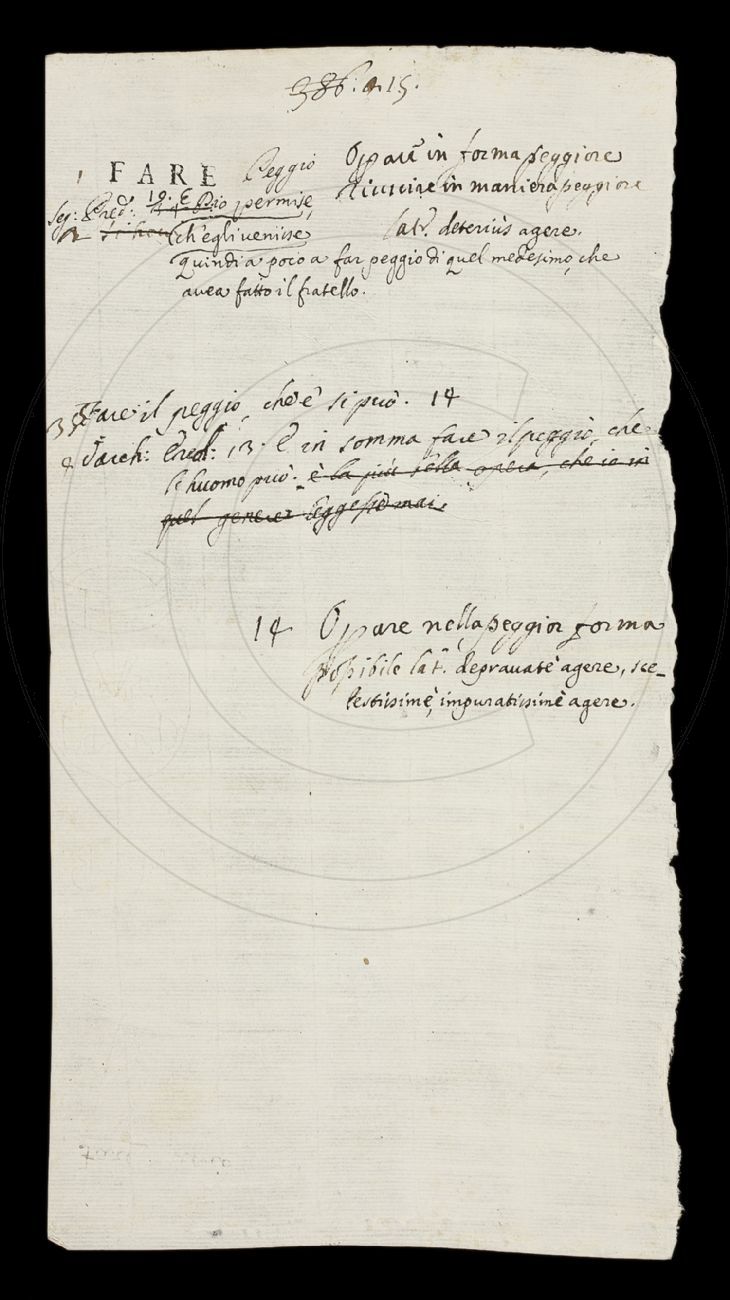 386: a 15.
1 FARE Peggio Oprare in forma peggiore
Riuscire in maniera peggiore
Seg: Pred: 10. E Dio permise,
ch'egli venisse lat. deterius agere.
quindi a poco a far peggio di quel medesimo, che
avea fatto il fratello.
Fare il peggio, che e' si può. 14
Varch: Ercol: 13. E in somma fare il peggio, che
l'huomo può. è la più bella opera, che io in
quel genere leggessi mai.
14 Oprare nella peggior forma
possibile lat. depravatè agere, sce-
lestissimè, impuratissimè agere.